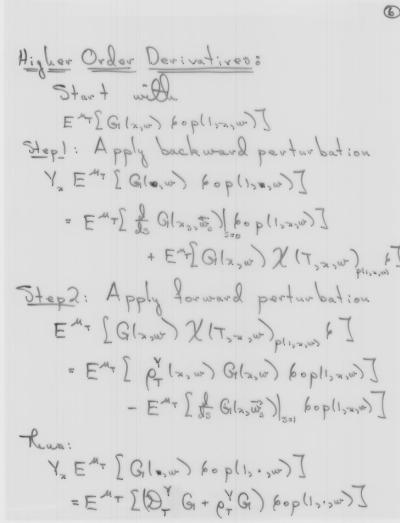 6
Higher Order Derivatives:
Start with
E^{μ_T}[G(x,w) f∘p(1,x,w)]
Step 1: Apply backward perturbation
Y_x E^{μ_T}[G(•,w) f∘p(1,•,w)]
= E^{μ_T}[d/ds G(x_s, w_s)|_{s=0} f∘p(1,x,w)]
+ E^{μ_T}[G(x,w) X(T,x,w)_{p(1,x,w)} f]
Step 2: Apply forward perturbation
E^{μ_T}[G(x,w) X(T,x,w)_{p(1,x,w)} f]
= E^{μ_T}[ρ_T^Y(x,w) G(x,w) f∘p(1,x,w)]
- E^{μ_T}[d/ds G(x,w_s)|_{s=0} f∘p(1,x,w)]
Thus:
Y_x E^{μ_T}[G(•,w) f∘p(1,·,w)]
= E^{μ_T}[(D_T^Y G + ρ_T^Y G) f∘p(1,·,w)]